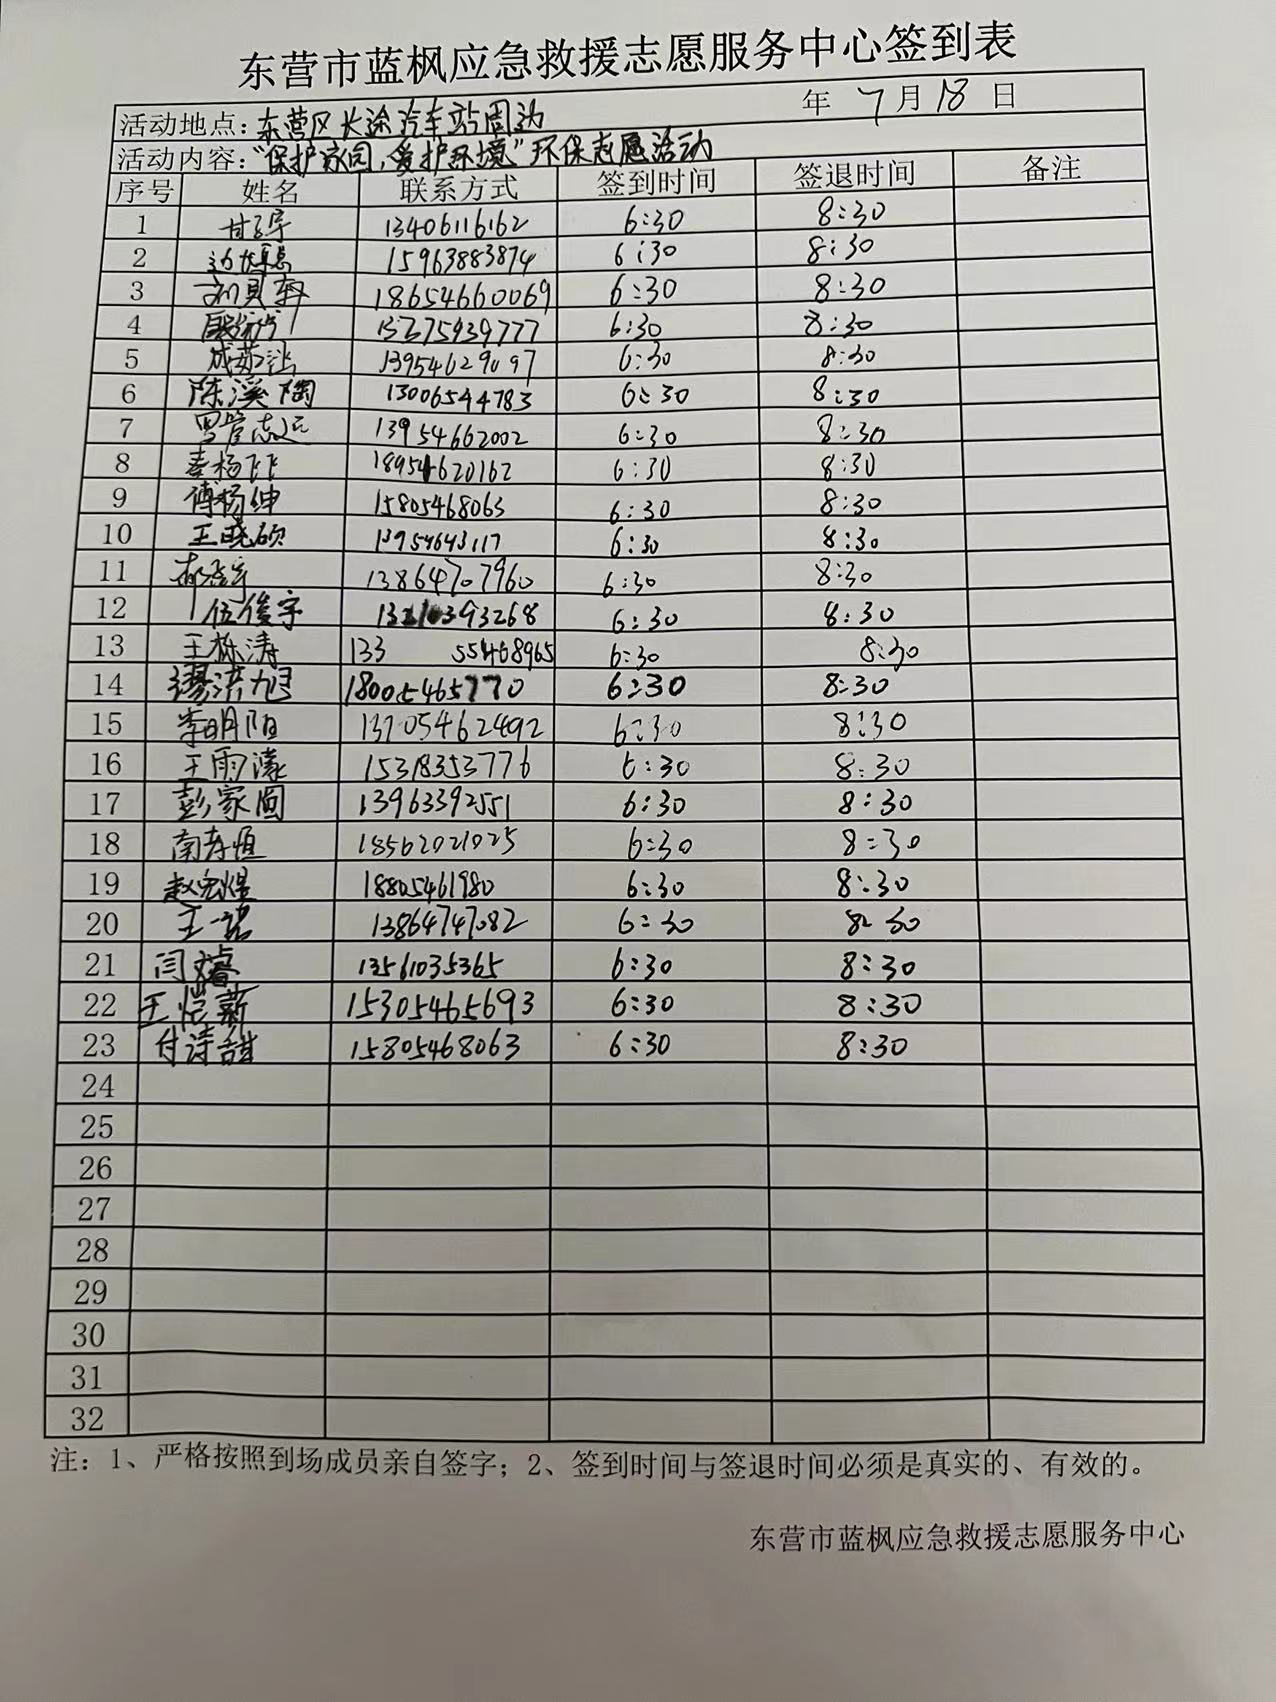 东营市蓝枫应急救援志愿服务中心签到表
年 7月18日
活动地点:东营区长途汽车站周边
活动内容:“保护家园,爱护环境”环保志愿活动
序号 姓名 联系方式 签到时间 签退时间 备注
1 13406116162 6:30 8:30
2 15963883874 6:30 8:30
3 18654660069 6:30 8:30
4 6:30 8:30
5 13954629097 6:30 8:30
6 陈溪陶 13006544783 6:30 8:30
7 罗管志远 13954662002 6:30 8:30
8 秦杨飞飞 18954620162 6:30 8:30
9 傅杨绅 15805468063 6:30 8:30
10 王晓硕 13954643117 6:30 8:30
11 13864707960 6:30 8:30
12 伍俊宇 6:30 8:30
13 王栎涛 133 55468965 6:30 8:30
14 缪洪旭 18005465770 6:30 8:30
15 李明阳 13705462492 6:30 8:30
16 王雨濛 15318353776 6:30 8:30
17 彭家囿 13963392551 6:30 8:30
18 南寿恒 18562021025 6:30 8:30
19 赵宏煜 18805461980 6:30 8:30
20 王一诺 13864747082 6:30 8:30
21 闫睿 13561035365 6:30 8:30
22 王恺薪 15305465693 6:30 8:30
23 付诗甜 15805468063 6:30 8:30
24
25
26
27
28
29
30
31
32
注:1、严格按照到场成员亲自签字;2、签到时间与签退时间必须是真实的、有效的。
东营市蓝枫应急救援志愿服务中心